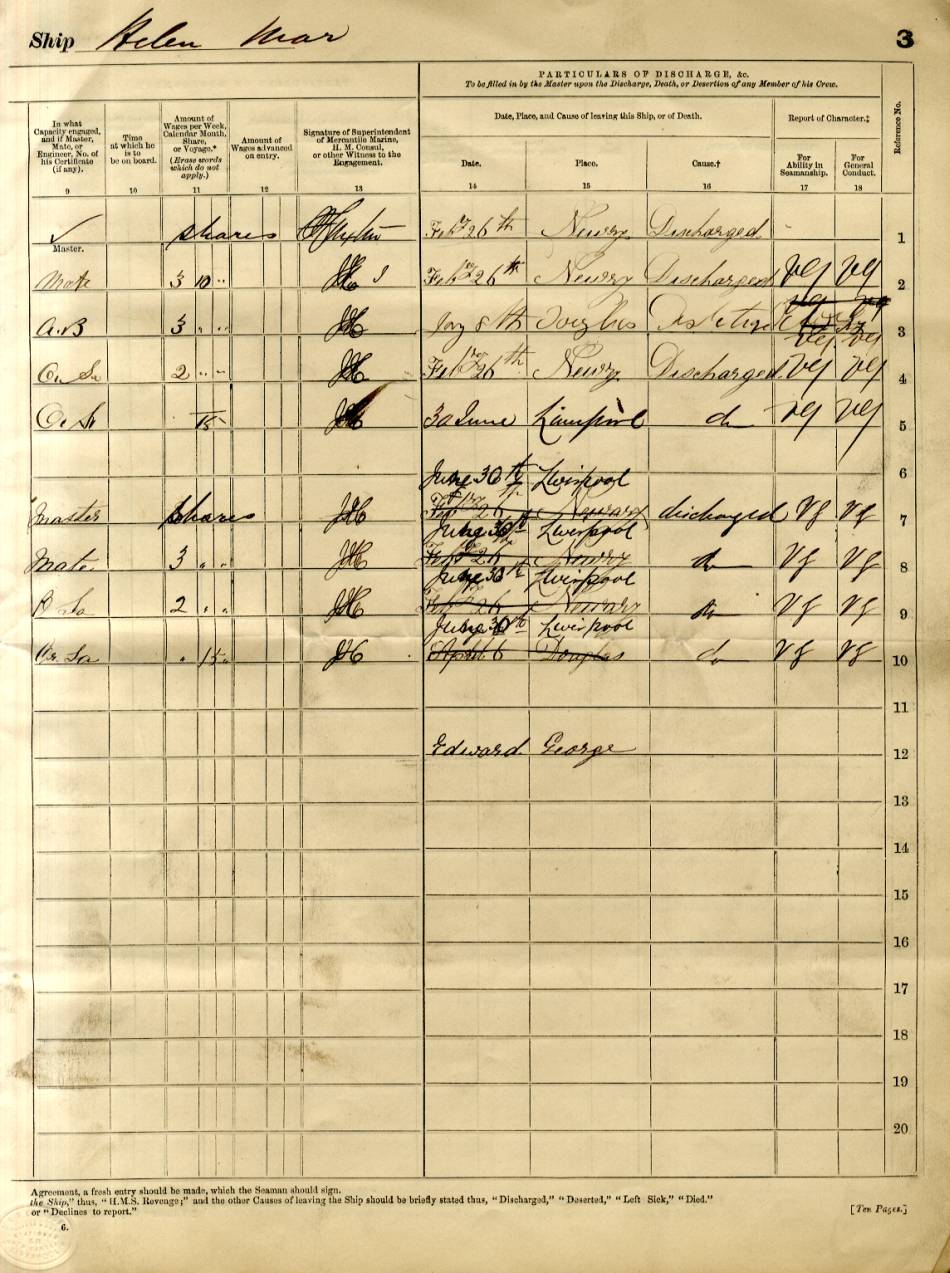 Ship Helen Mar 3
PARTICULARS OF DISCHARGE, &c.
To be filled in by the Master upon the Discharge, Death, or Desertion of any Member of his Crew.
In what Capacity engaged, and if Master, Mate, or Engineer, No. of his Certificate (if any).
Time at which he is to be on board.
Amount of Wages per Week, Calendar Month, Share, or Voyage.* (Erase words which do not apply.)
Amount of Wages advanced on entry.
Signature of Superintendent of Mercantile Marine, H. M. Consul, or other Witness to the Engagement.
Date, Place, and Cause of leaving this Ship, or of Death.
Report of Character.‡
Reference No.
Date. Place. Cause.† For Ability in Seamanship. For General Conduct.
9 10 11 12 13 14 15 16 17 18
✓ shares Feby 26th Newry Discharged 1
Master.
Mate 3 10 " JH Feby 26th Newry Discharged VG VG 2
A.B 3 " " JH 8th VG VG 3
2 " " JH Feby 26th Newry Discharged VG VG 4
15 JH 30 June Liverpool do VG VG 5
June 30th Liverpool 6
Master Shares JH Feby 26 Newry discharged VG VG 7
June 30th Liverpool
Mate 3 " " JH Feby 26 Newry do VG VG 8
June 30th Liverpool
2 " " JH Feby 26 Newry do VG VG 9
June 30th Liverpool
" 15 " JH April 6 Douglas do VG VG 10
11
Edward George 12
13
14
15
16
17
18
19
20
Agreement, a fresh entry should be made, which the Seaman should sign.
the Ship," thus, "H.M.S. Revenge;" and the other Causes of leaving the Ship should be briefly stated thus, "Discharged," "Deserted," "Left Sick," "Died."
or "Declines to report." [Ten Pages.]
6.